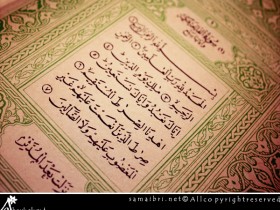 بسم الله الرحمن الرحيم
الحمد لله رب العلمين الرحمن
الرحيم ملك يوم الدين
إياك نعبد وإياك نستعين
اهدنا الصرط المستقيم
صرط الذين أنعمت عليهم غير
المغضوب عليهم ولا الضالين
samaibri.net©Allcopyrightreserved